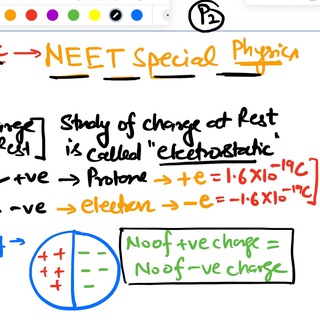 P2
→ NEET Special Physics
Study of charge at Rest
Rest] is called "electrostatic"
+ve → Protons → +e = 1.6×10⁻¹⁹C
- -ve → electron → -e = -1.6×10⁻¹⁹C
→ + + - - No of +ve charge =
+ + - - No of -ve charge
+ -